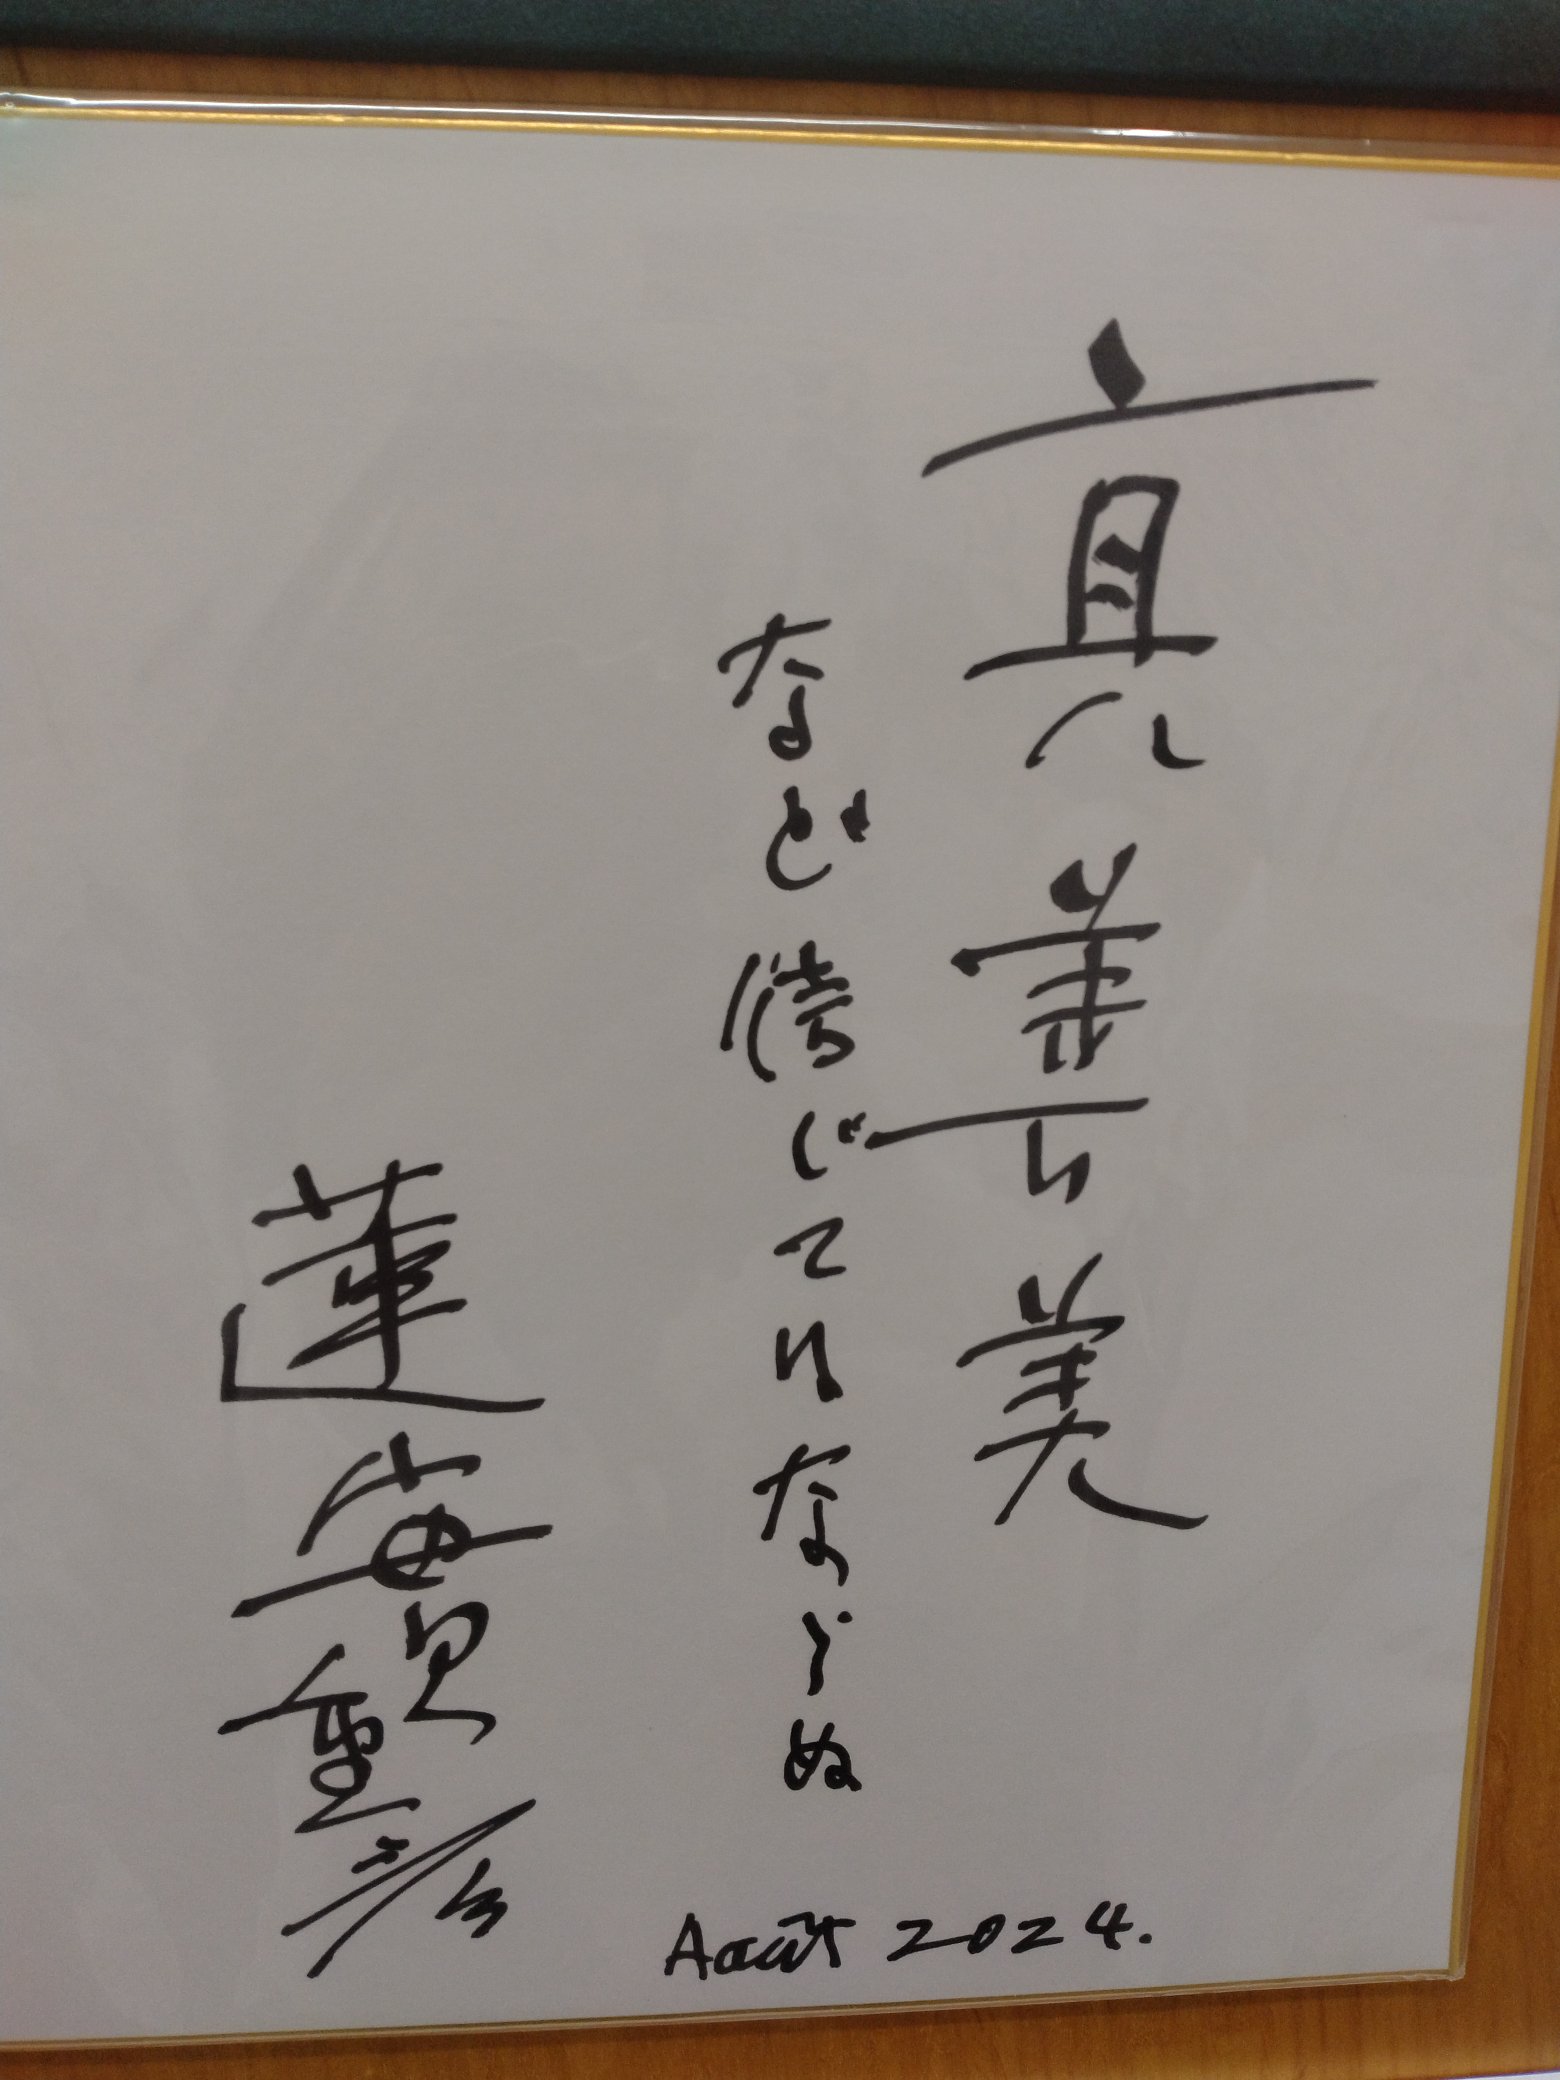 真善美
など信じてはならぬ
蓮實重彦
Août 2024.